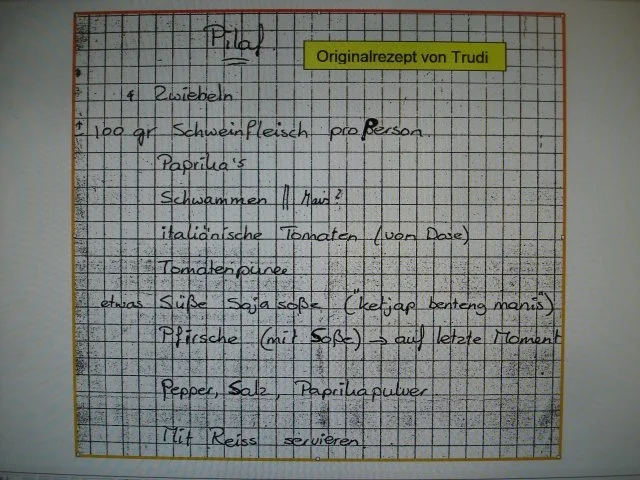 Pilaf
Originalrezept von Trudi
4 Zwiebeln
± 100 gr Schweinfleisch pro Person
Paprika's
Schwammen || Mais?
italiänische Tomaten (von Dose)
Tomatenpuree
etwas Süße Sojasoße ("ketjap benteng manis")
Pfirsche (mit Soße) → auf letzte Moment
Pepper, Salz, Paprikapulver
Mit Reiss servieren